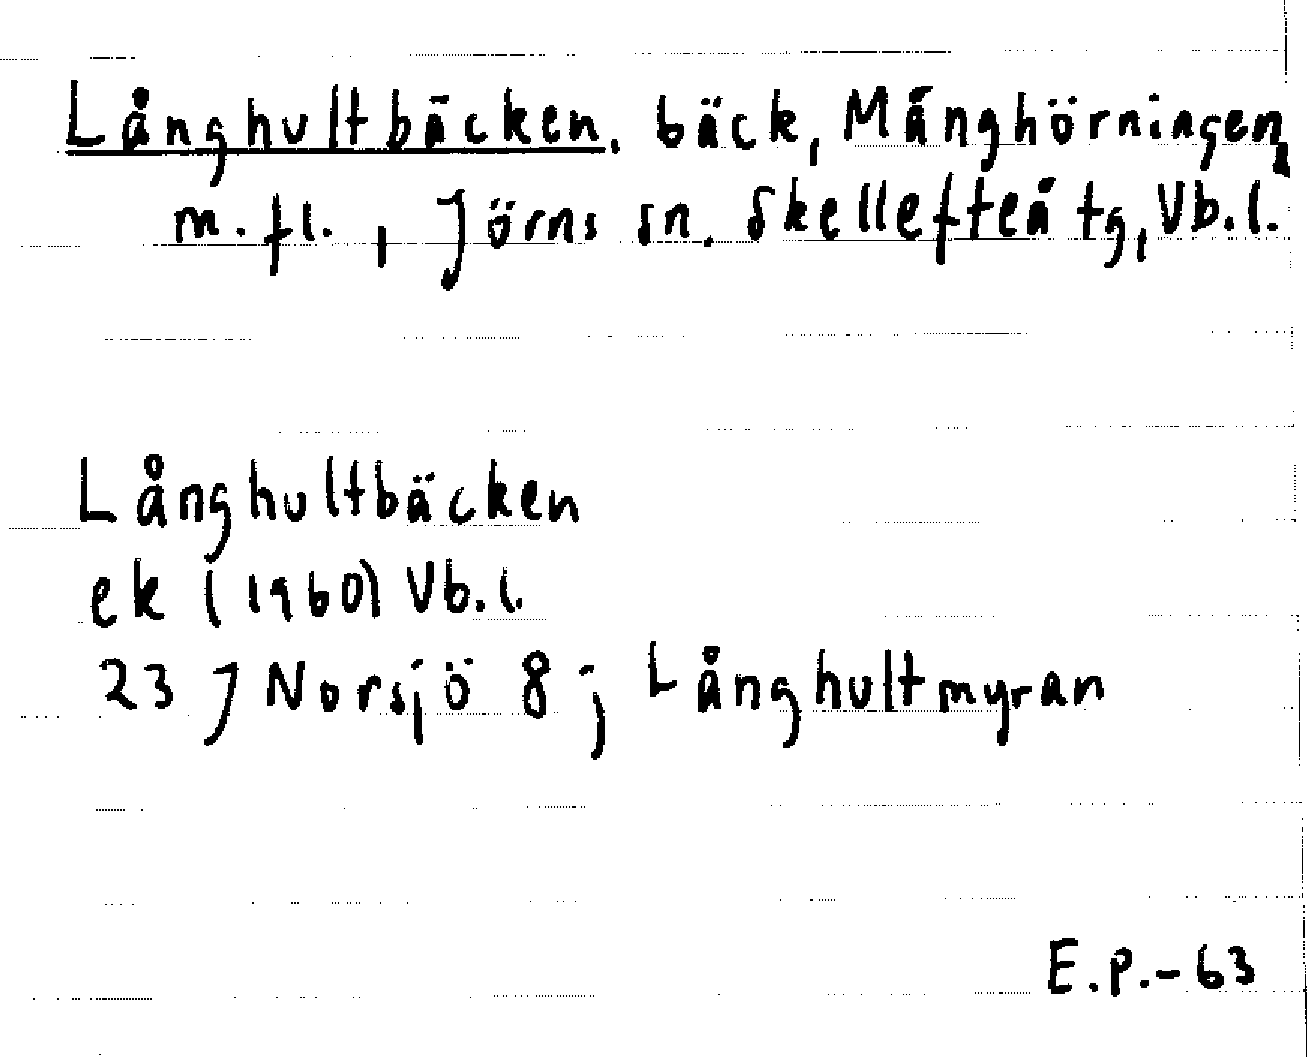 Långhultbäcken. bäck, Månghörningen
m.fl., Jörns sn. Skellefteå tg, Vb.l.
Långhultbäcken
ek (1960) Vb.l.
23 J Norsjö 8 j Långhultmyran
E.P.-63